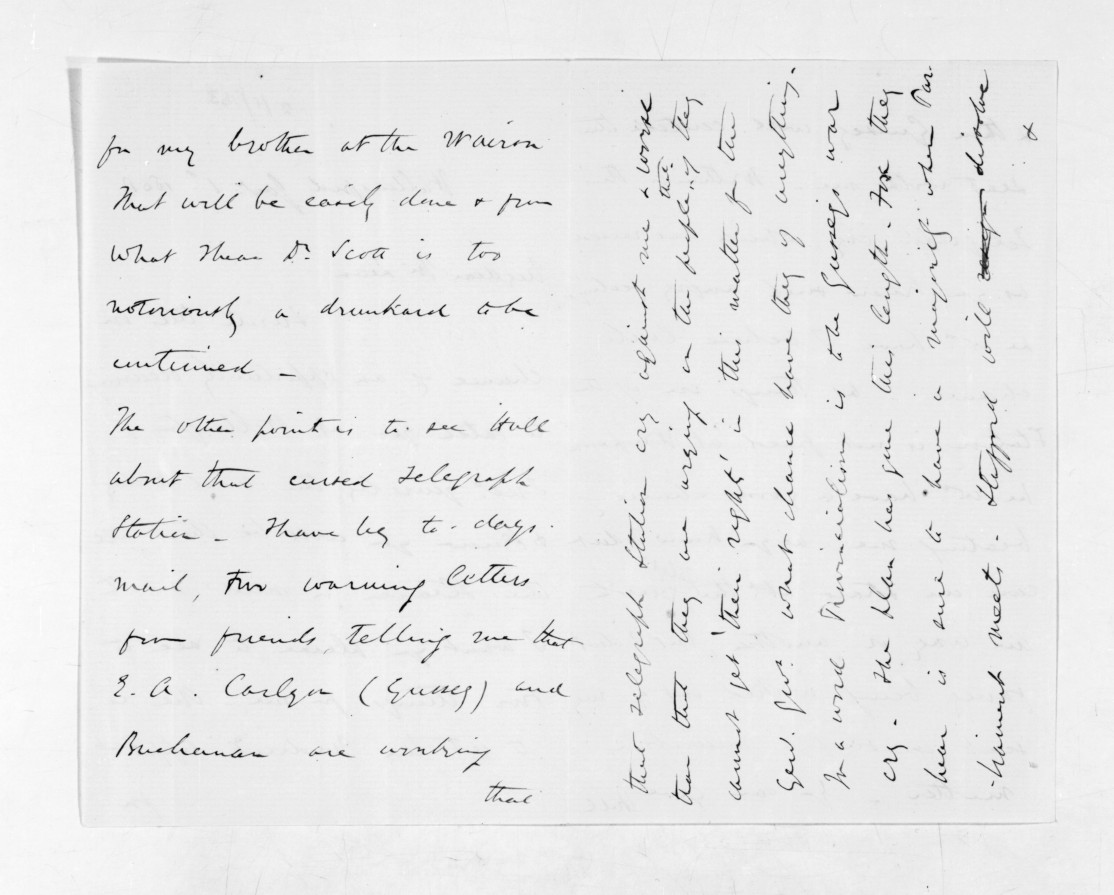 for my brother at the Wairoa
That will be easily done & from
what I hear Dr. Scott is too
notoriously a drunkard to be
continued –
The other point is to see Hall
about that cursed Telegraph
Station – I have by to-days
mail, two warning letters
from friends telling me that
E. A. Carlyon (Gussey) and
Buchanan are working
that
that telegraph Station cry against me & worse
than that they are urging on the people that if they
cannot get 'their right' in this matter of the
Genl. Govt. what chance have they of anything.
In a word Provincialism is to be Gussey's war
cry – The plan has gone this length – they
hear is sure to have a majority when Par
-liament meets – Stafford will dissolve
&